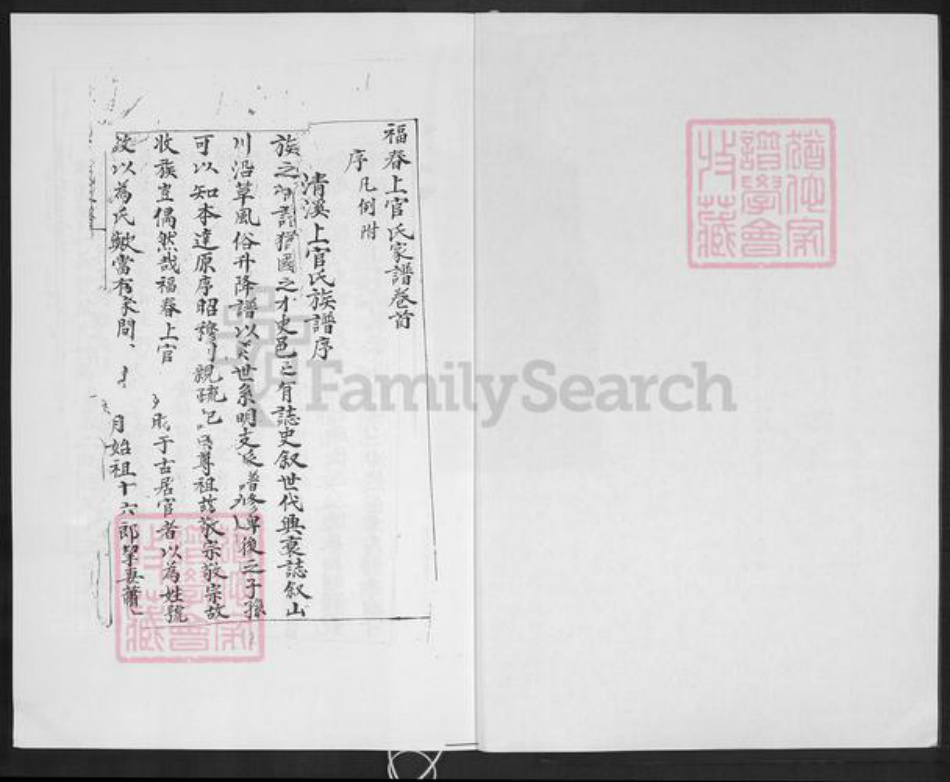 福春上官氏家譜卷首
序 凡例附
清溪上官氏族譜序
族之有譜猶國之才史邑之有誌史叙世代興衰誌叙山
川沿革風俗升降譜以世系明支譜修俾後之子孫
可以知本達原序昭穆親疏尊祖敬宗敬宗故
收族豈偶然哉福春上官于古居官者以為姓號
以為氏歟當有家問月始祖十六郎挈妻蕭
猶他家譜學會收藏
FamilySearch
猶他家譜學會收藏